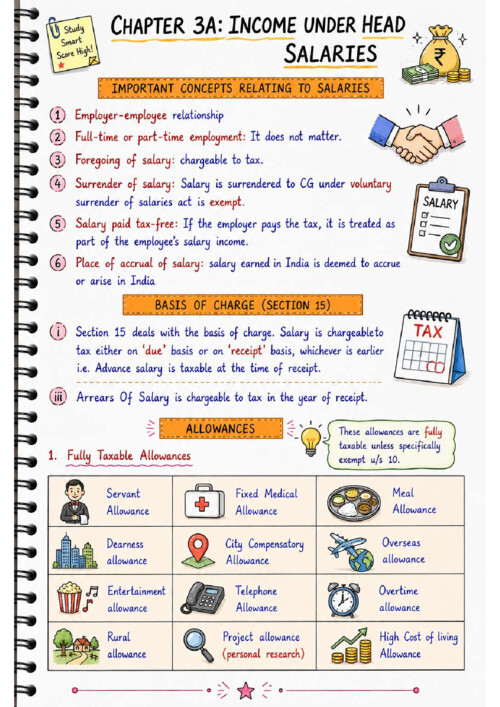 Study
Smart
Score High!
CHAPTER 3A: INCOME UNDER HEAD
SALARIES
IMPORTANT CONCEPTS RELATING TO SALARIES
1 Employer-employee relationship
2 Full-time or part-time employment: It does not matter.
3 Foregoing of salary: chargeable to tax.
4 Surrender of salary: Salary is surrendered to CG under voluntary
surrender of salaries act is exempt.
5 Salary paid tax-free: If the employer pays the tax, it is treated as
part of the employee's salary income.
6 Place of accrual of salary: salary earned in India is deemed to accrue
or arise in India
SALARY
BASIS OF CHARGE (SECTION 15)
i Section 15 deals with the basis of charge. Salary is chargeable to
tax either on 'due' basis or on 'receipt' basis, whichever is earlier
i.e. Advance salary is taxable at the time of receipt.
iii Arrears Of Salary is chargeable to tax in the year of receipt.
TAX
ALLOWANCES
These allowances are fully
taxable unless specifically
exempt u/s 10.
1. Fully Taxable Allowances
Servant
Allowance
Fixed Medical
Allowance
Meal
Allowance
Dearness
allowance
City Compensatory
Allowance
Overseas
allowance
Entertainment
allowance
Telephone
Allowance
Overtime
allowance
Rural
allowance
Project allowance
(personal research)
High Cost of living
Allowance